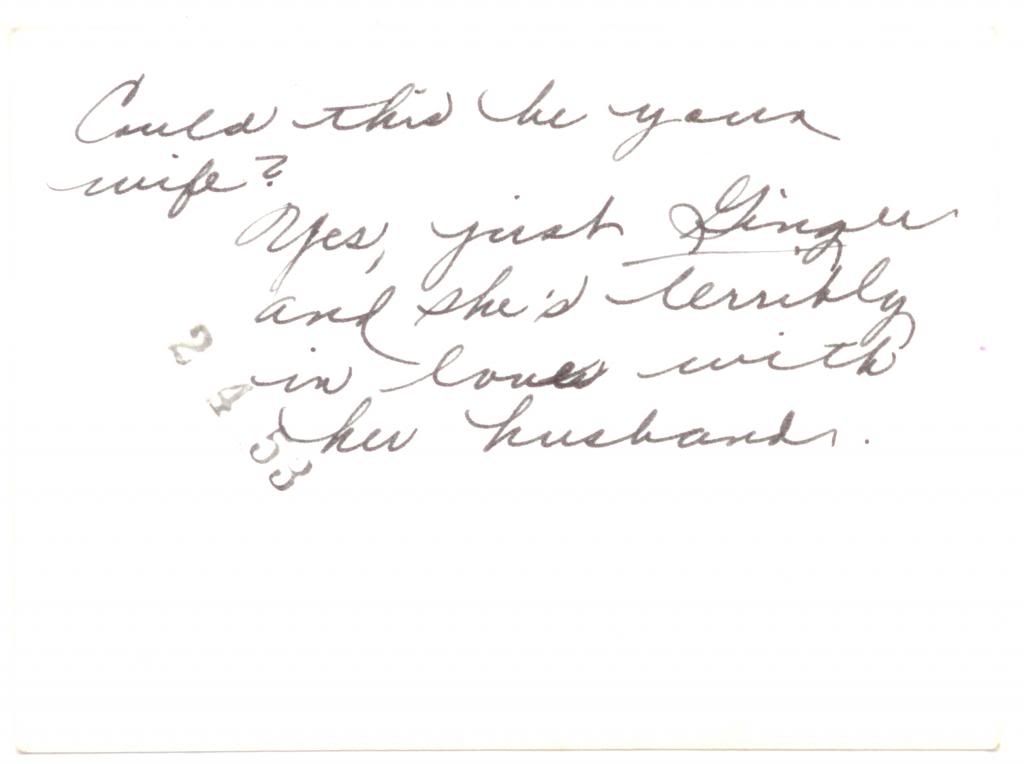 Could this be your
wife?
Yes, just Ginger
and she's terribly
in love with
her husband.
2 4 53